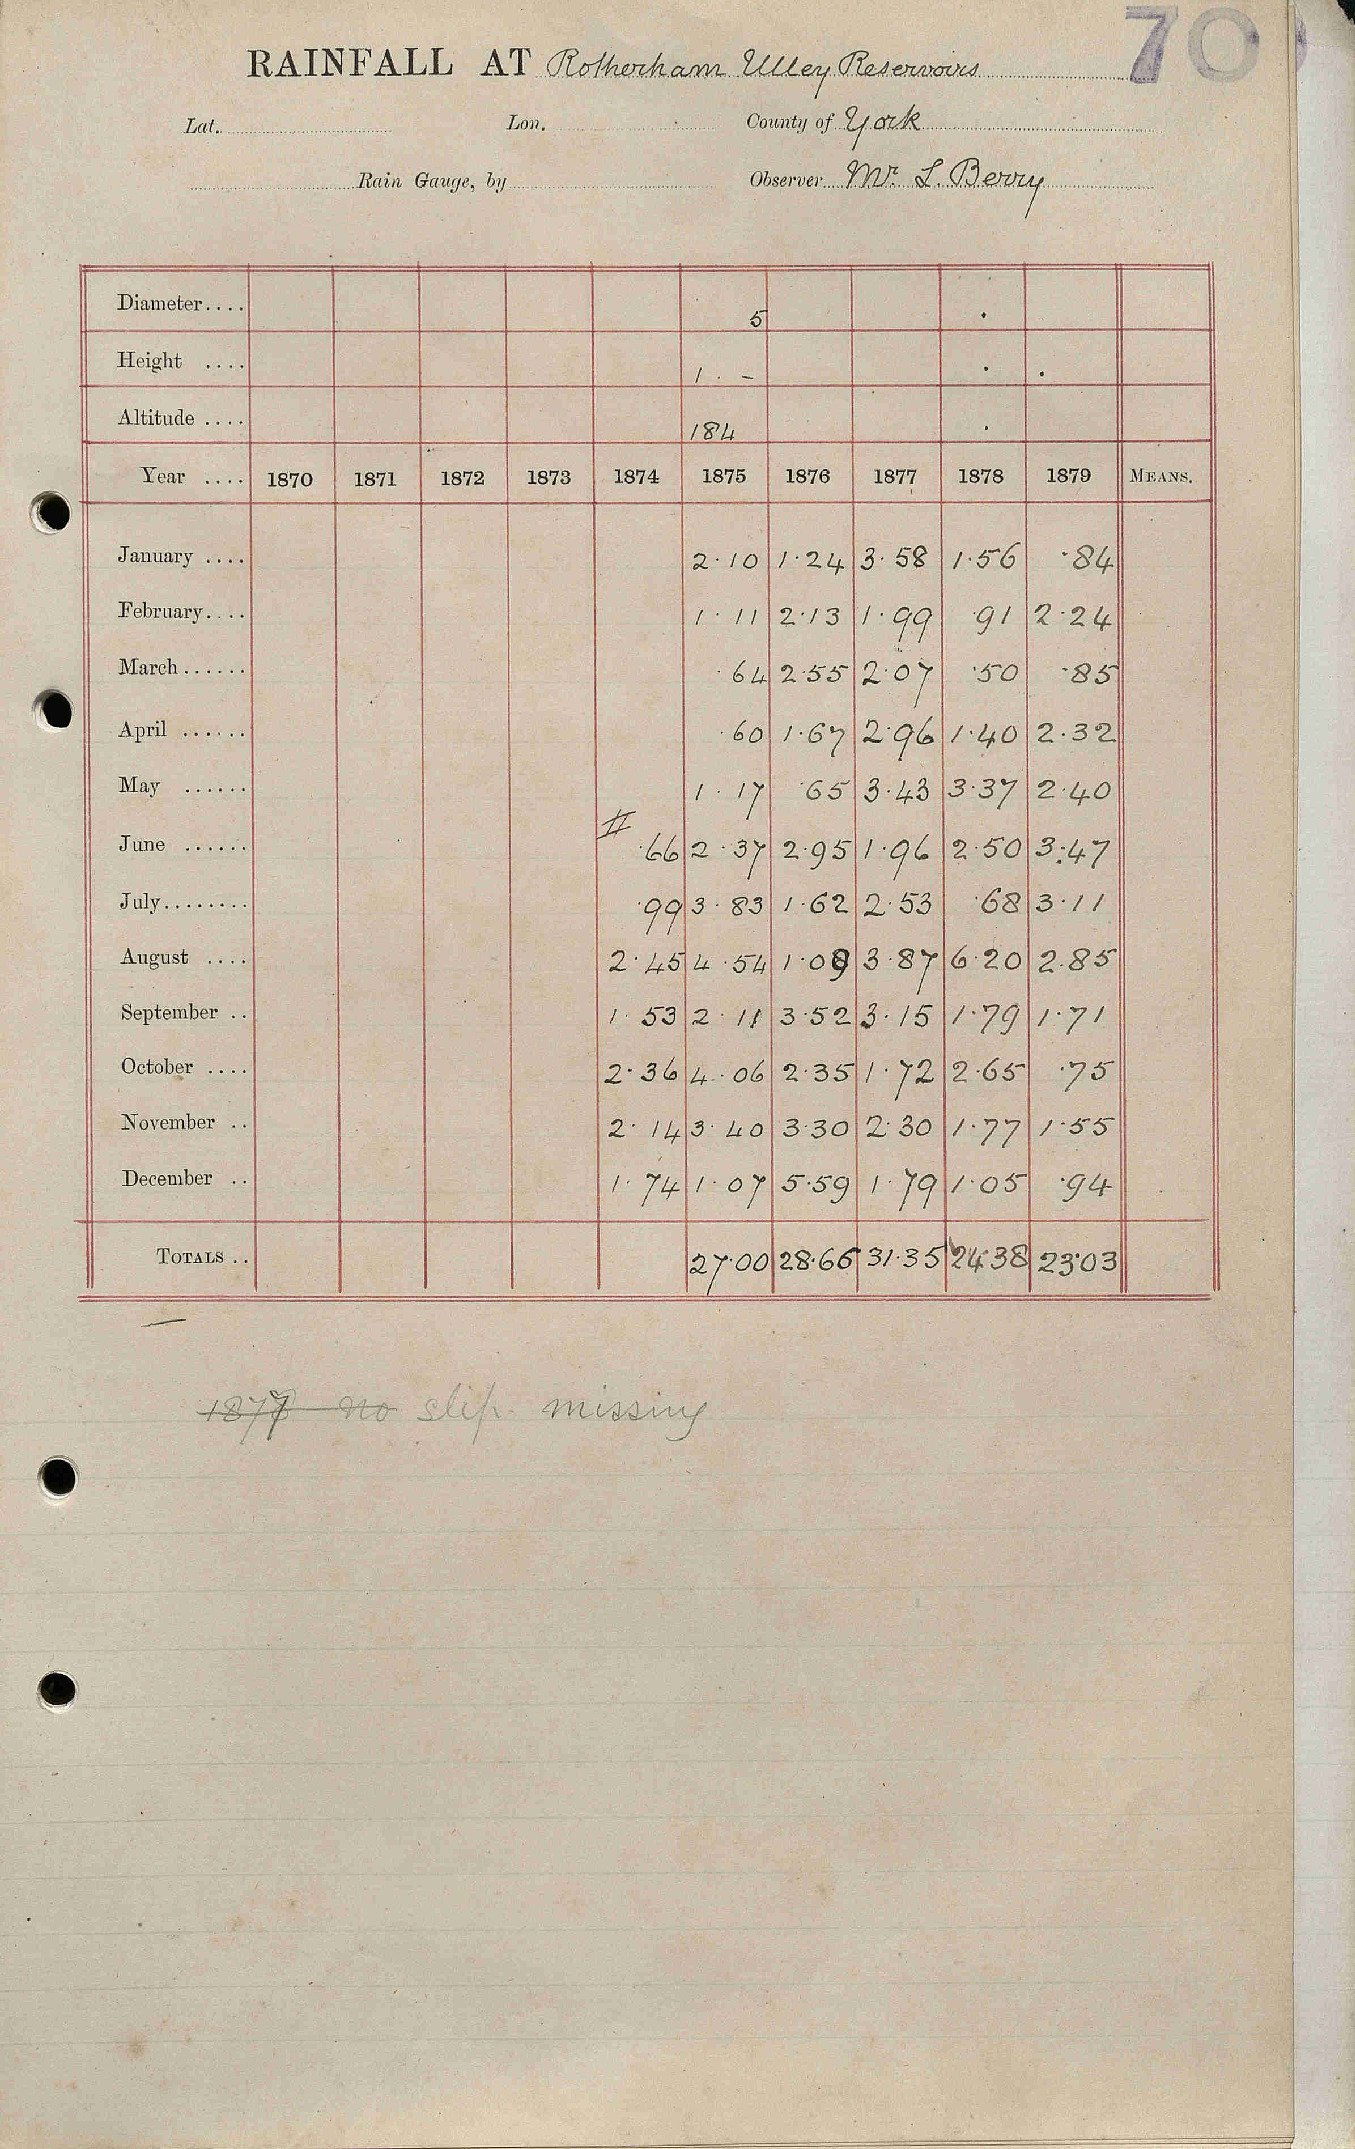 70
RAINFALL AT Rotherham Ulley Reservoirs
Lat. Lon. County of York
Rain Gauge, by Observer Mr. L. Berry
Diameter.... 5
Height .... 1 · -
Altitude .... 184
Year .... 1870 1871 1872 1873 1874 1875 1876 1877 1878 1879 MEANS.
January .... 2·10 1·24 3·58 1·56 ·84
February.... 1·11 2·13 1·99 ·91 2·24
March...... ·64 2·55 2·07 ·50 ·85
April ...... ·60 1·67 2·96 1·40 2·32
May ...... 1·17 ·65 3·43 3·37 2·40
June ...... # ·66 2·37 2·95 1·96 2·50 3·47
July........ ·99 3·83 1·62 2·53 ·68 3·11
August .... 2·45 4·54 1·09 3·87 6·20 2·85
September .. 1·53 2·11 3·52 3·15 1·79 1·71
October .... 2·36 4·06 2·35 1·72 2·65 ·75
November .. 2·14 3·40 3·30 2·30 1·77 1·55
December .. 1·74 1·07 5·59 1·79 1·05 ·94
TOTALS .. 27·00 28·66 31·35 24·38 23·03
1877 no slip missing